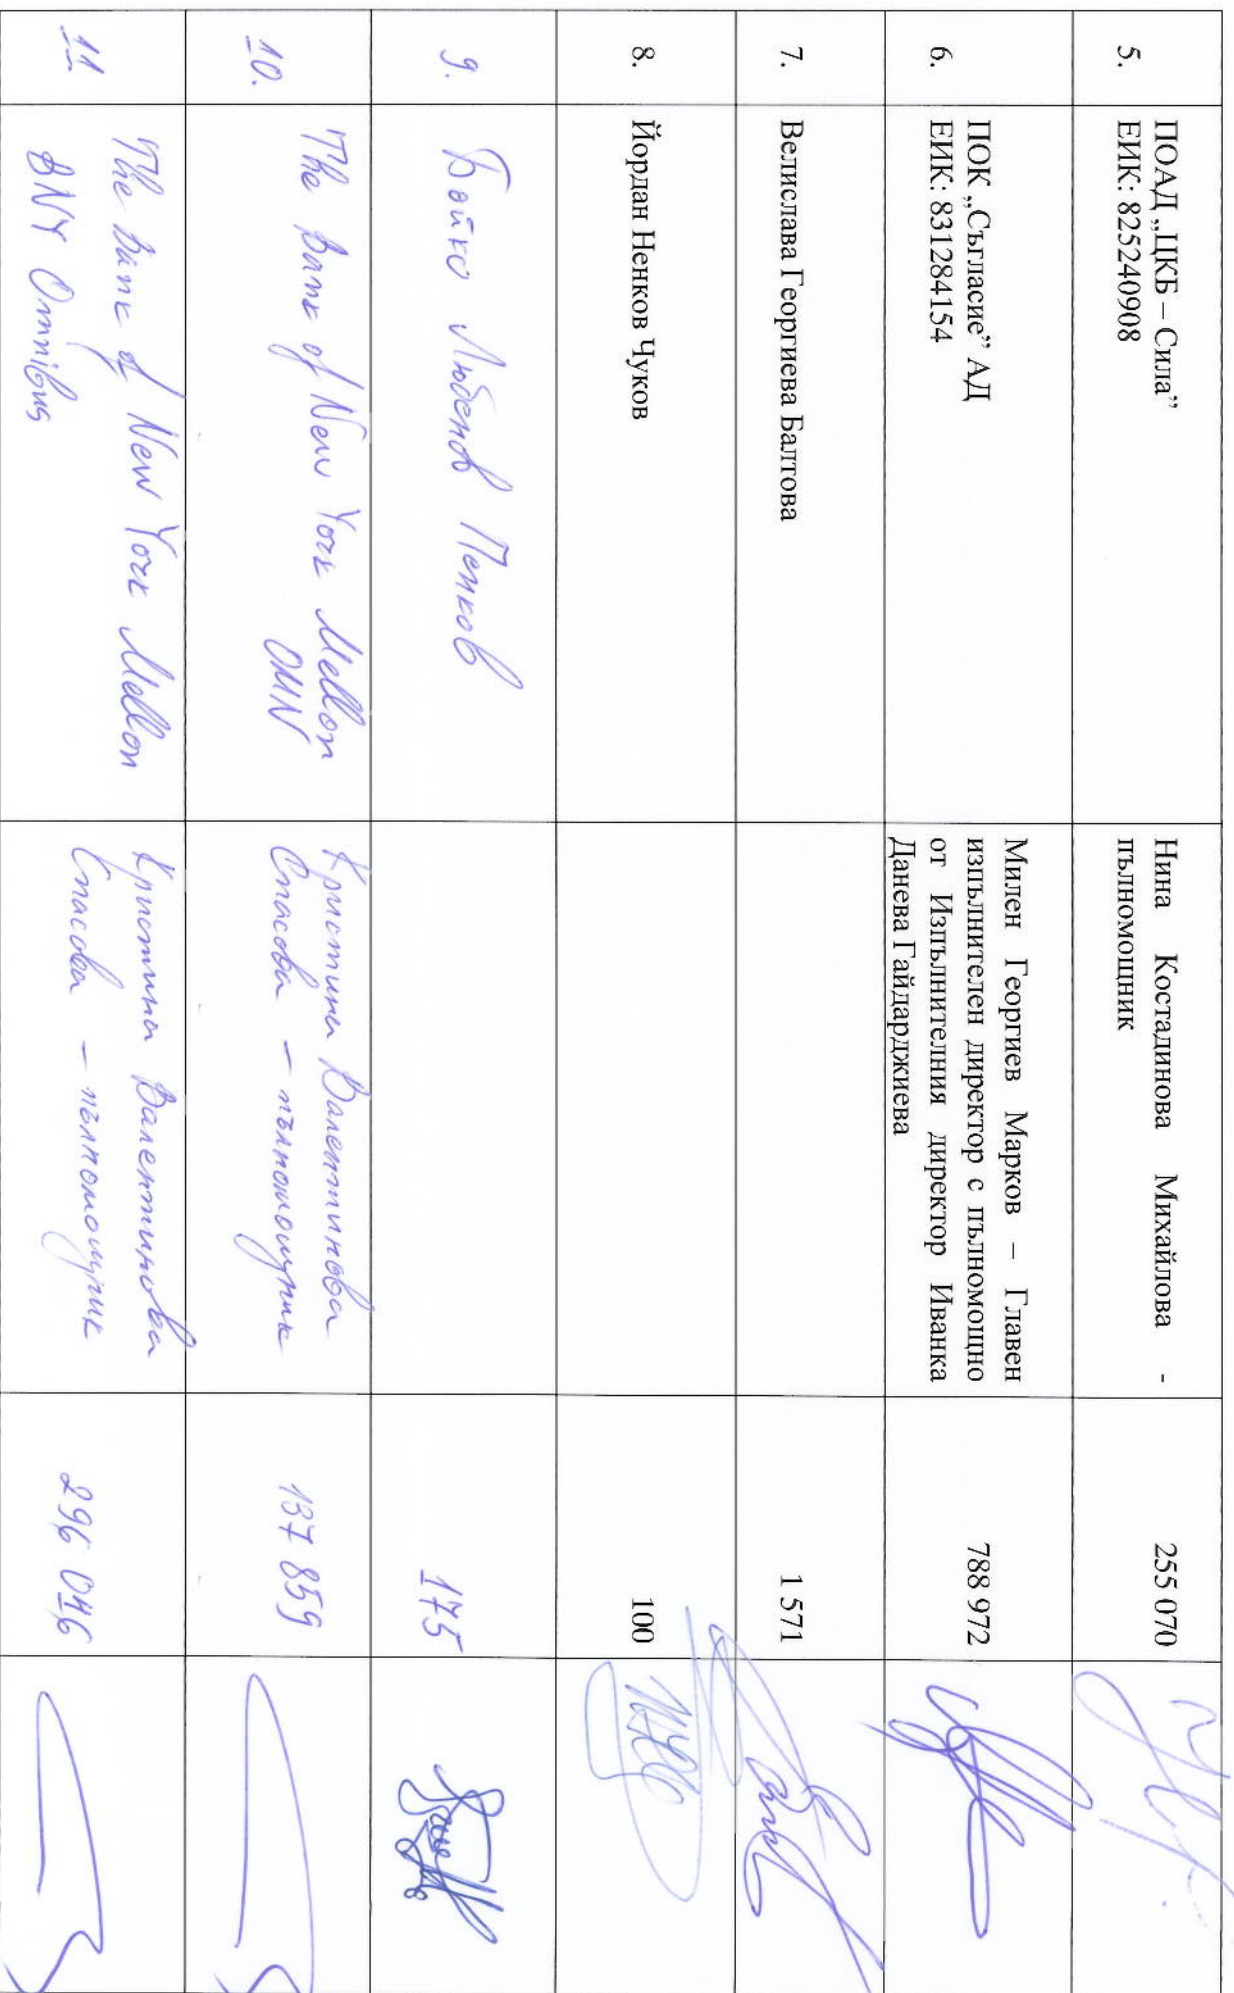 5.
ПОАД „ЦКБ – Сила”
ЕИК: 825240908
Нина Костадинова Михайлова -
пълномощник
255 070
6.
ПОК „Съгласие” АД
ЕИК: 831284154
Милен Георгиев Марков – Главен
изпълнителен директор с пълномощно
от Изпълнителния директор Иванка
Данева Гайдарджиева
788 972
7.
Велислава Георгиева Балтова
1 571
8.
Йордан Ненков Чуков
100
9.
Бойко Любенов Пенков
175
10.
The Bank of New York Mellon
OMN
Кристина Валентинова
Спасова – пълномощник
137 859
11
The Bank of New York Mellon
BNY Omnibus
Кристина Валентинова
Спасова – пълномощник
296 046